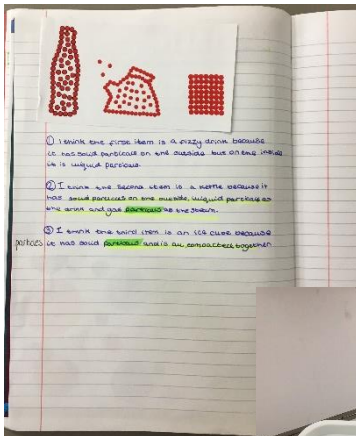 ① I think the first item is a fizzy drink because
it has solid particals on the outside but on the inside
it is liquid particals.
② I think the second item is a kettle because it
has solid particals on the outside, liquid particals as
the drink and gas particals as the steam.
③ I think the third item is an ice cube because
particles it has solid particals and is all compacted together